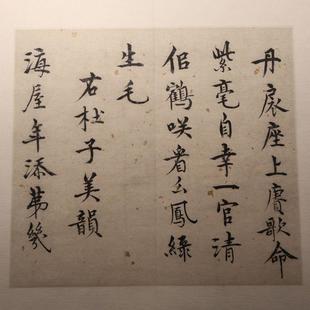 丹扆座上賡歌命
紫毫自幸一官清
鶴咲看幺鳳綠
生毛
右杜子美韻
海屋年添第幾